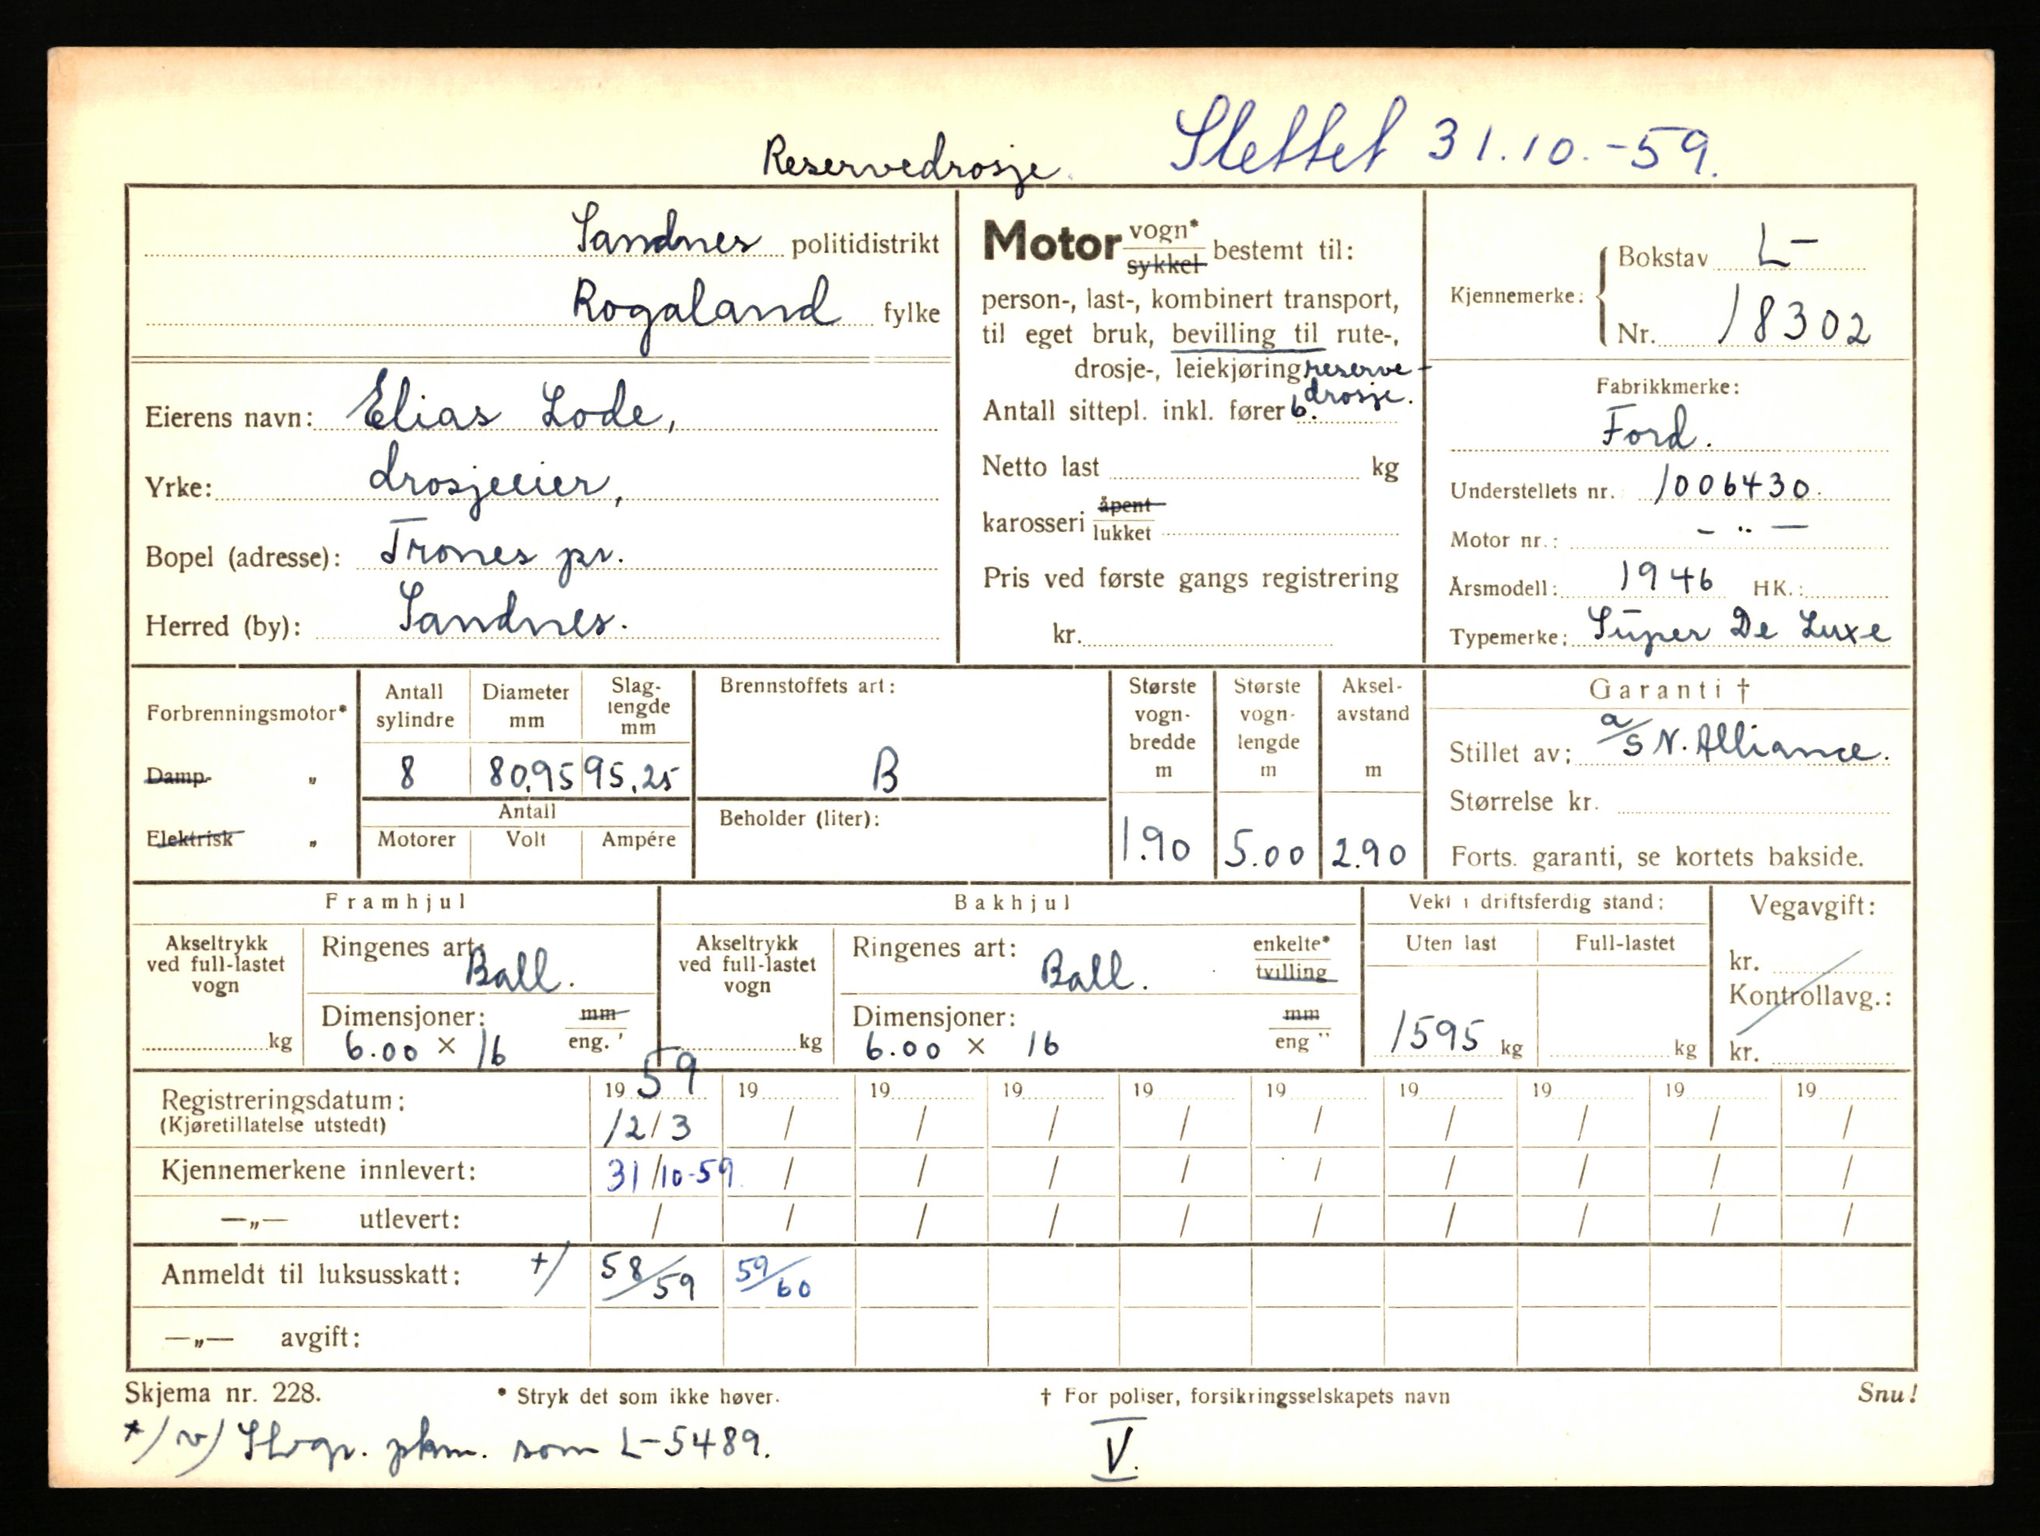 Reservedrosje. Slettet 31.10.-59.
Sandnes politidistrikt
Rogaland fylke
Eierens navn: Elias Lode,
Yrke: drosjeeier,
Bopel (adresse): Trones pr.
Herred (by): Sandnes.
Motor vogn* sykkel bestemt til:
person-, last-, kombinert transport,
til eget bruk, bevilling til rute-,
drosje-, leiekjøring reserve-
drosje.
Antall sittepl. inkl. fører 6.
Netto last kg
karosseri åpent lukket
Pris ved første gangs registrering
kr.
Kjennemerke: Bokstav L-
Nr. 18302
Fabrikkmerke:
Ford.
Understellets nr. 1006430.
Motor nr.: - " -
Årsmodell: 1946 HK.:
Typemerke: Super De Luxe
Forbrenningsmotor*
Damp- "
Elektrisk "
Antall sylindre 8
Diameter mm 80,95
Slag-lengde mm 95,25
Antall
Motorer Volt Ampére
Brennstoffets art:
B
Beholder (liter):
Største vogn-bredde m 1.90
Største vogn-lengde m 5.00
Aksel-avstand m 2.90
Garanti †
Stillet av: a/s N. Alliance.
Størrelse kr.
Forts. garanti, se kortets bakside.
Framhjul
Akseltrykk ved full-lastet vogn
kg
Ringenes art: Ball.
Dimensjoner: mm eng. '
6.00 × 16
Bakhjul
Akseltrykk ved full-lastet vogn
kg
Ringenes art: Ball. enkelte* tvilling
Dimensjoner: mm eng "
6.00 × 16
Vekt i driftsferdig stand:
Uten last Full-lastet
1595 kg kg
Vegavgift:
kr.
Kontrollavg.:
kr.
Registreringsdatum: 19 59 19 19 19 19 19 19 19 19 19
(Kjøretillatelse utstedt) 12/3 / / / / / / / / /
Kjennemerkene innlevert: 31/10-59. / / / / / / / / /
—„— utlevert: / / / / / / / / / /
Anmeldt til luksusskatt: +/ 58/59 59/60
—„— avgift:
Skjema nr. 228. * Stryk det som ikke høver. † For poliser, forsikringsselskapets navn Snu!
som L-5489. V.